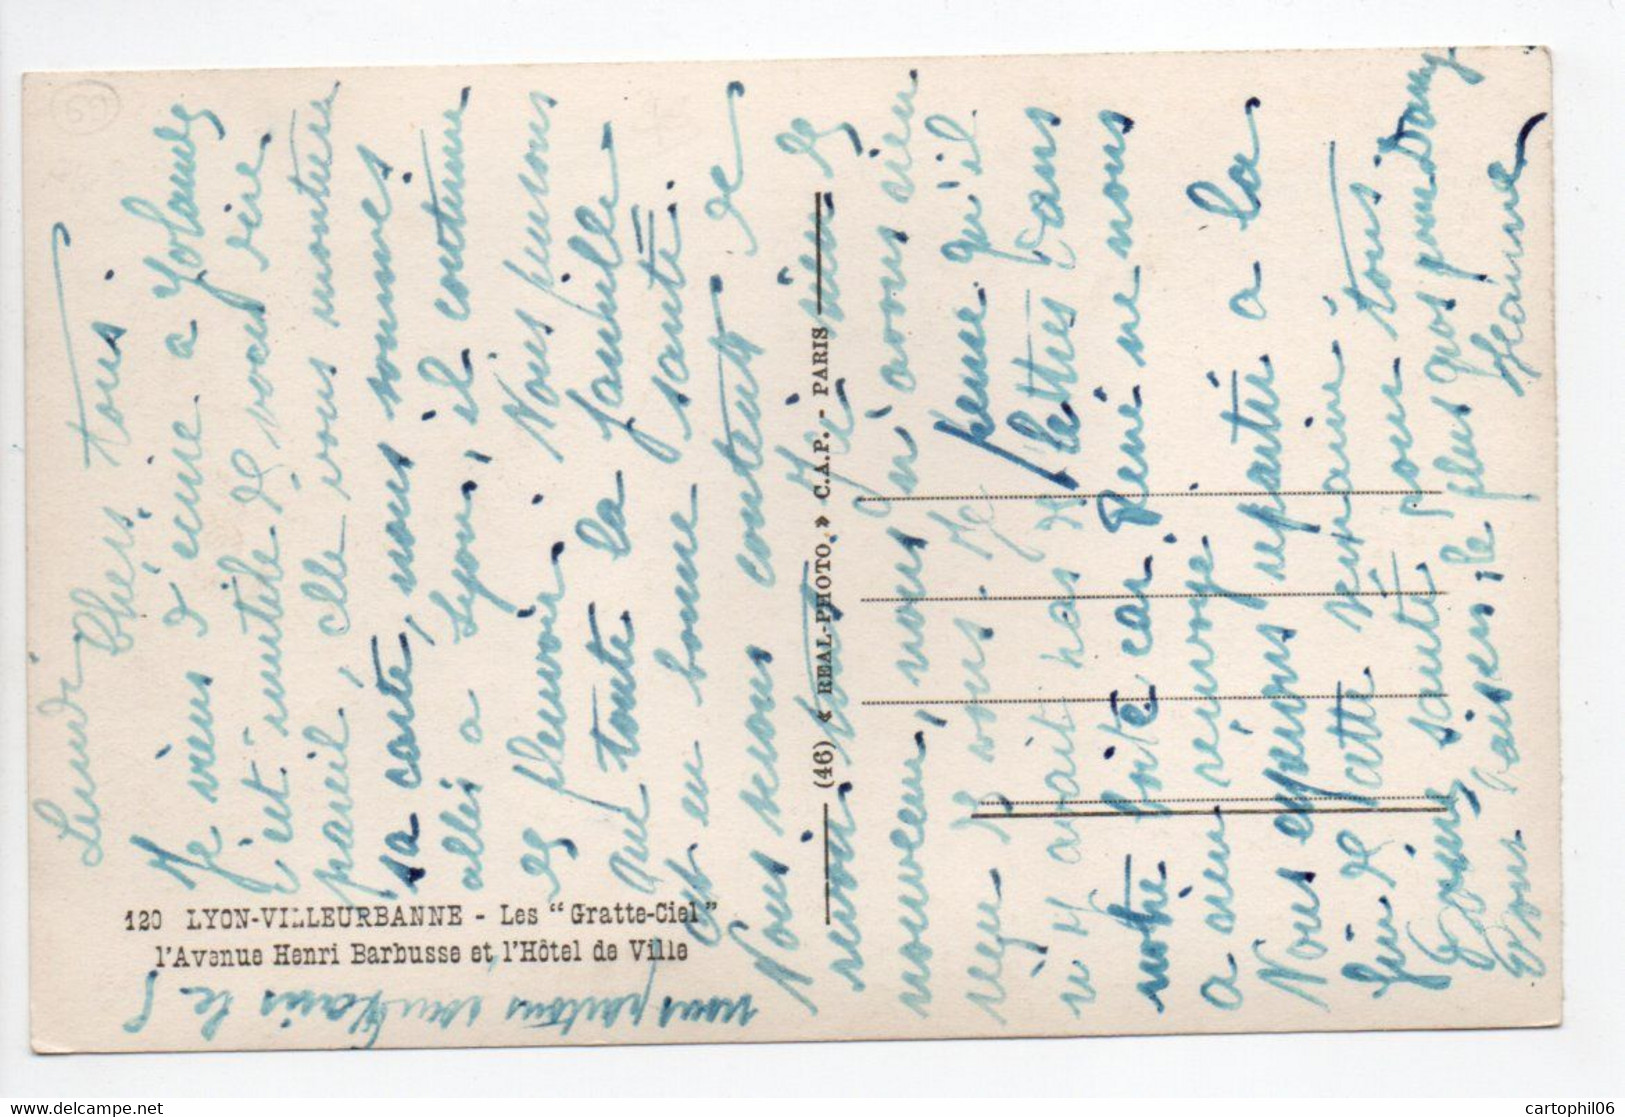 Lundi
Chers tous.
Je viens d'ecrire a Yolande
c'est inutile de vous dire
pareil, elle vous montrera
sa carte, nous sommes
allés a Lyon, il continue
de pleuvoir. Nous pensons
que toute la famille
est en bonne santé.
Nous serons contents de
revoir tout
nouveau, nous n'avons rien
reçu de vous. Je pense qu'il
n'y avait pas de lettres dans
notre boite car René ne nous
a rien renvoyé
Nous espérons repartir a la
fin de cette semaine.
Bonne santé pour tous
Bons baisers, le plus gros pour Dany
Jeanne
nous partons sur Paris le
120 LYON-VILLEURBANNE - Les "Gratte-Ciel"
l'Avenue Henri Barbusse et l'Hôtel de Ville
(46) « REAL-PHOTO » C.A.P. - PARIS
59
cartophil06